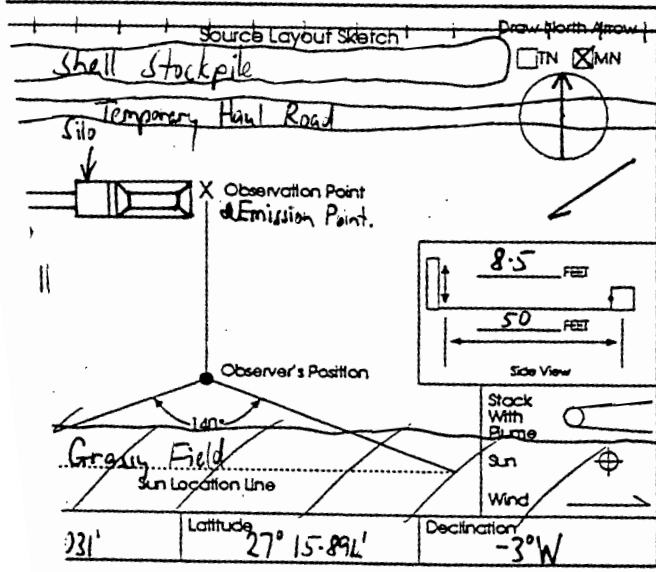 Source Layout Sketch
Draw North Arrow
Shell Stockpile
TN MN
Temporary Haul Road
Silo
X Observation Point
& Emission Point.
8.5 FEET
50 FEET
Side View
Observer's Position
140°
Stack
With
Plume
Grassy Field
Sun
Sun Location Line
Wind
031'
Latitude
27° 15.894'
Declination
-3° W